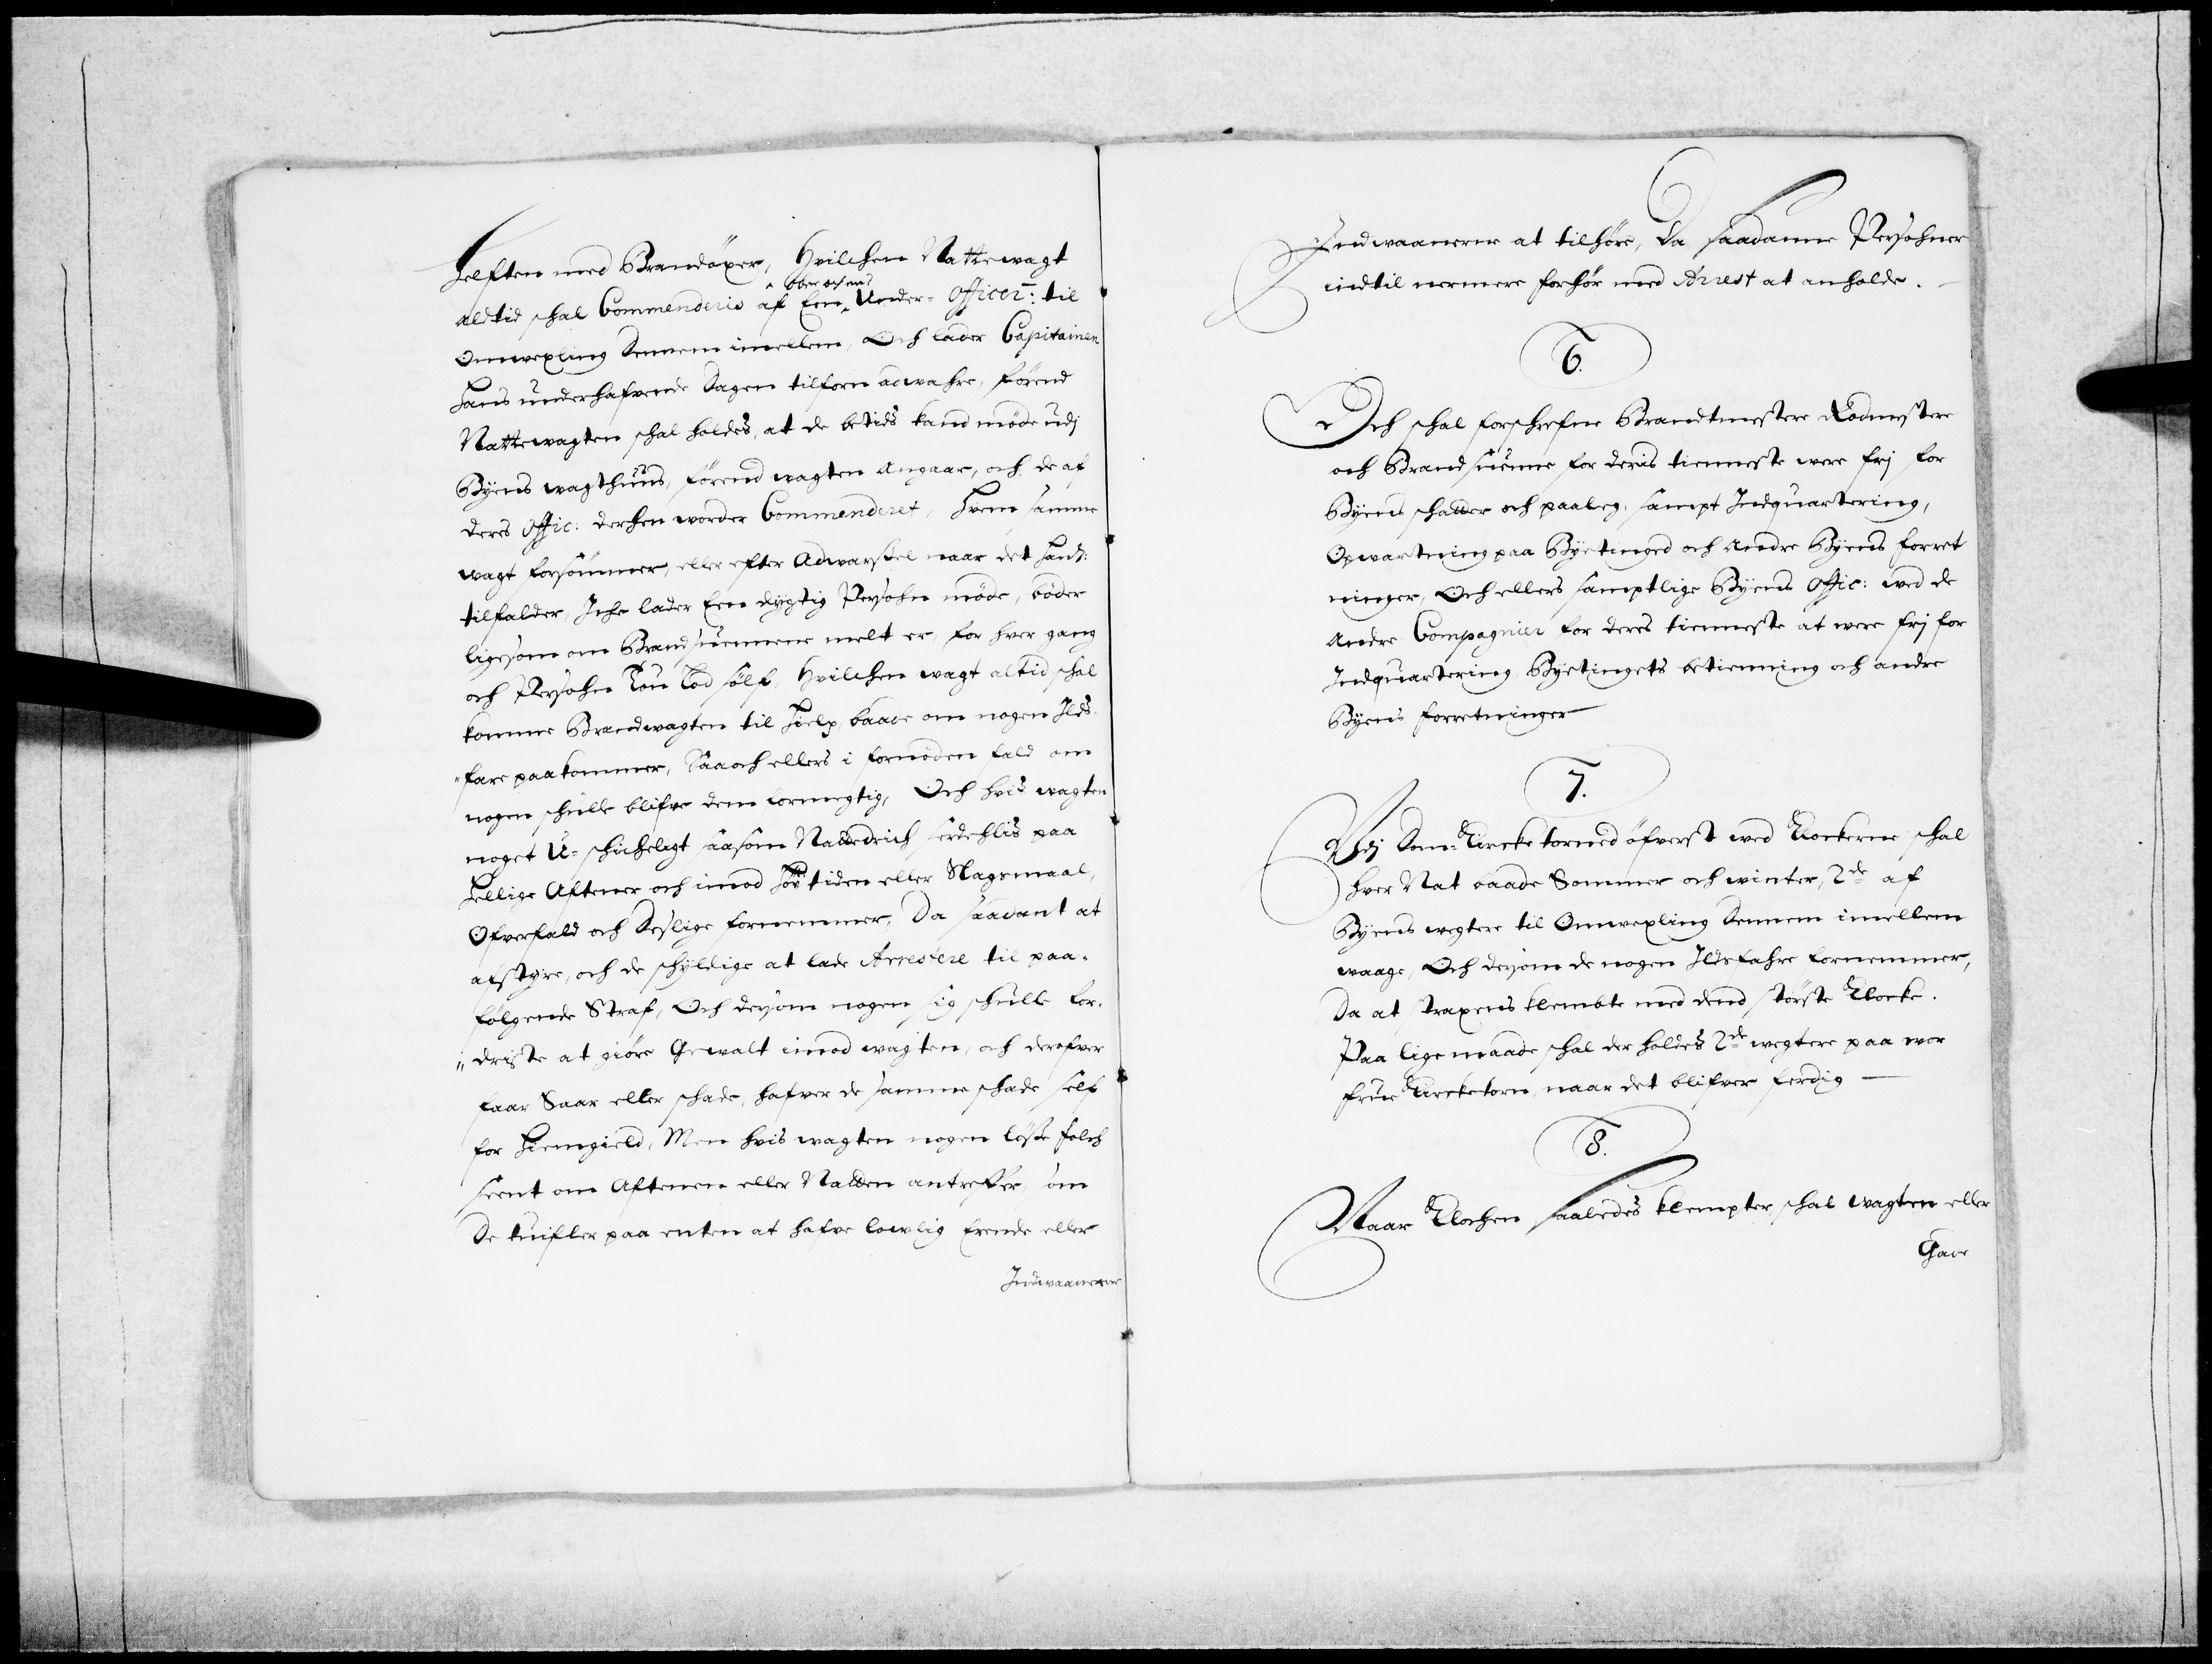 Helften med Brandöxer, Hvilchen Nattewagt
ober och en
altid schal Commenderis af Een Under-Officer: til
Omwexling dennem imellem, Och lader Capitainen
Hans underhafvende Dagen tilforn adwahre, förend
Nattewagten schal holdes, at de betids kand möde udj
Byens wagthuus, förend wagten angaar, och de af
deres Offic: derhen worder Commenderet, Hvem samme
wagt forsömmer, eller efter Adwarssel naar det Hand:
tilfalder, Iche lader Een dygtig Persohn möde, böder
ligesom om Brandsuennene melt er, for hver gang
och Persohn Tou Lod sölf, Hvilchen wagt altid schal
komme Brandwagten til Hielp, baade om nogen Ilds-
fare paakommer, Saa och ellers i fornöden fald om
nogen schulle blifve dem formegtig, Och hvis wagten
noget U-schicheligt saasom Natte drich serdehlis paa
Hellige Aftener och imod Höytiden eller Slagsmaal,
Ofverfald och deslige fornemmer, Da saadant at
afstyre, och de schyldige at lade Arrestere til paa-
fölgende Straf, Och dersom nogen sig schulle for-
driste at giöre Gewalt imod wagten, och derofver
faar Saar eller schade, hafver de samme schade self
for Hiemgield, Men hvis wagten nogen löse folch
seent om Aftenen eller Natten antreffer, som
De tuifler paa enten at hafve lowlig Erende eller
Indwaanerne
Indwaanerne at tilhöre, Da saadanne Persohner
indtil nermere forhör med Arrest at anholde.
6.
Och schal forschrefne Brandtmestere Rodmestere
och Brandsuenne for deris tienneste were frj for
Byens schatter och paaleg, sampt Indquartering,
Opwartning paa Byetinged och andre Byens forret
ninger, Och ellers samptlige Byens Offic: ved de
andre Compagnier for deres tienneste at were frj for
Indquartering Byetingets betienning och andre
Byens forretninger
7.
Udj Dom-Kirke torned öfverst wed Klockerne schal
hver Nat baade Sommer och winter, 2de af
Byens wegtere til Omwexling dennem imellem
waage, Och dersom de nogen Ildsfahre fornemmer,
Da at straxens klembte med dend störste Klocke.
Paa lige maade schal der holdes 2de wegtere paa wor
frue Kircketorn, naar det blifver ferdig
8.
Naar Klochen saaledes klempter, schal wagten eller
Gade